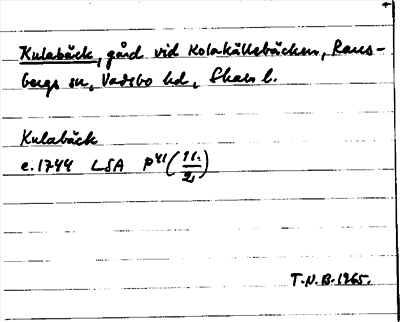 Kulabäck, gård vid Kolakällebäcken, Rans-
bergs sn, Vadsbo hd, Skar. l.
Kulabäck
c. 1744 LSA P41 (11./2)
T.N.B. 1965.